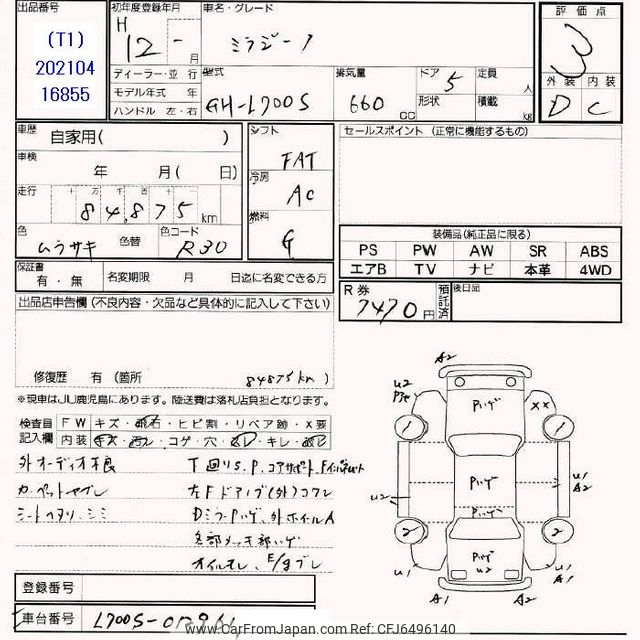 出品番号
(T1)
202104
16855
初年度登録年月
H 12 - 月
車名・グレード
ミラジーノ
評価点
3
外装 内装
D C
ディーラー・並行
モデル年式 年
ハンドル 左・右
型式
GH-L700S
排気量
660 CC
ドア 5
形状
定員 人
積載 kg
車歴
自家用( )
車検
年 月( 日)
走行
十 万 千 百 十
84,875 km
色
ムラサキ
色替
色コード
R30
シフト
FAT
冷房
AC
燃料
G
セールスポイント (正常に機能するもの)
装備品(純正品に限る)
PS PW AW SR ABS
エアB TV ナビ 本革 4WD
保証書
有・無
名変期限 月 日迄に名変できる方
R券
7470円
預託済
後日品
出品店申告欄(不良内容・欠品など具体的に記入して下さい)
修復歴 有(箇所 84875km)
※現車はJU鹿児島にあります。陸送費は落札店負担となります。
検査員 記入欄
FW キズ・飛石・ヒビ割・リペア跡・X要
内装 コゲ・穴・キレ
外オーディオ不良
カーペットヤブレ
シートヘタリ・シミ
T回りS.P.コアサポート、Fインパネ
左Fドアノブ(外)コワレ
Dミラーハゲ、外ホイールA
各部メッキ部ハゲ
オイルモレ、E/gブレ
A2
U2
ハゲ
XX
1
1
U2
ハゲ
ハゲ
U1
A2
2
2
ハゲ
U2
U1
U1
A2
A1
A2
登録番号
車台番号
www.CarFromJapan.com Ref: CFJ6496140